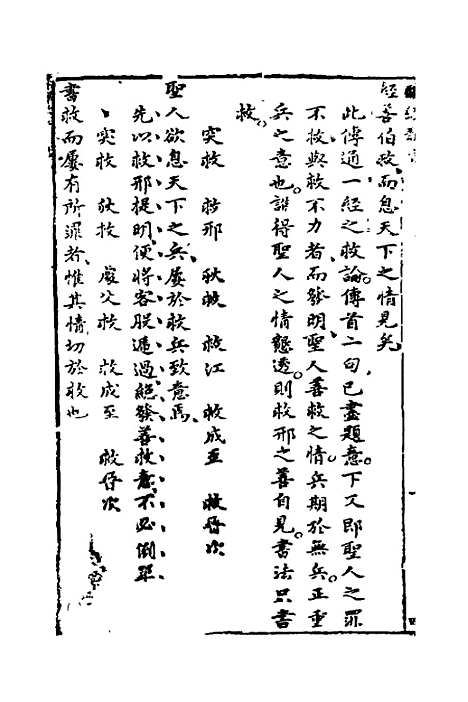 經善伯救而息天下之情見矣
此傳通一經之救論傳首二句已盡題意下又即聖人之罪
不救與救不力者而發明聖人善救之情兵期於無兵正重
兵之意也誰得聖人之情懇透則救邢之善自見書法只書
救
突救 救邢 狄救 救江 救成至 救晉次
聖人欲息天下之兵屢於救兵致意焉
先以救邢提明便將客股遞過絕發善救意不必倒單
突救 狄救 處父救 救成至 救晉次
書救而屢有所罪者惟其情切於救也